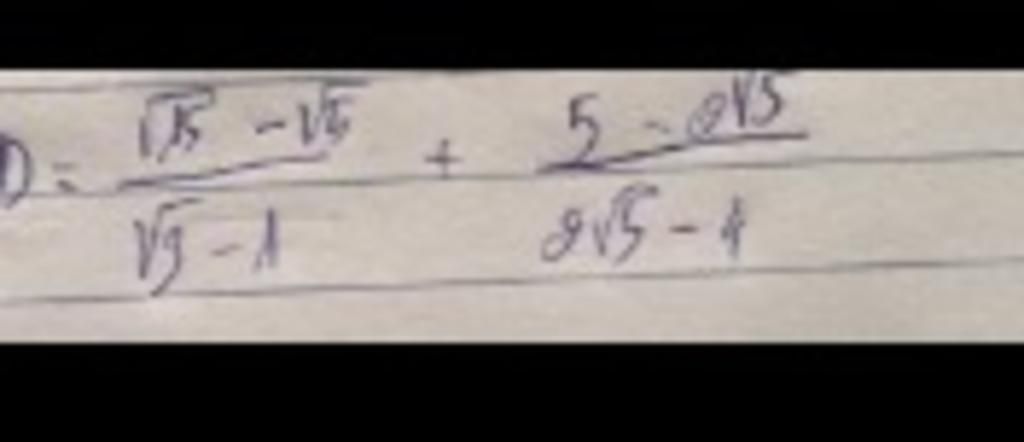 D = (√15 - √5) / (√3 - 1) + (5 - 2√5) / (2√5 - 4)